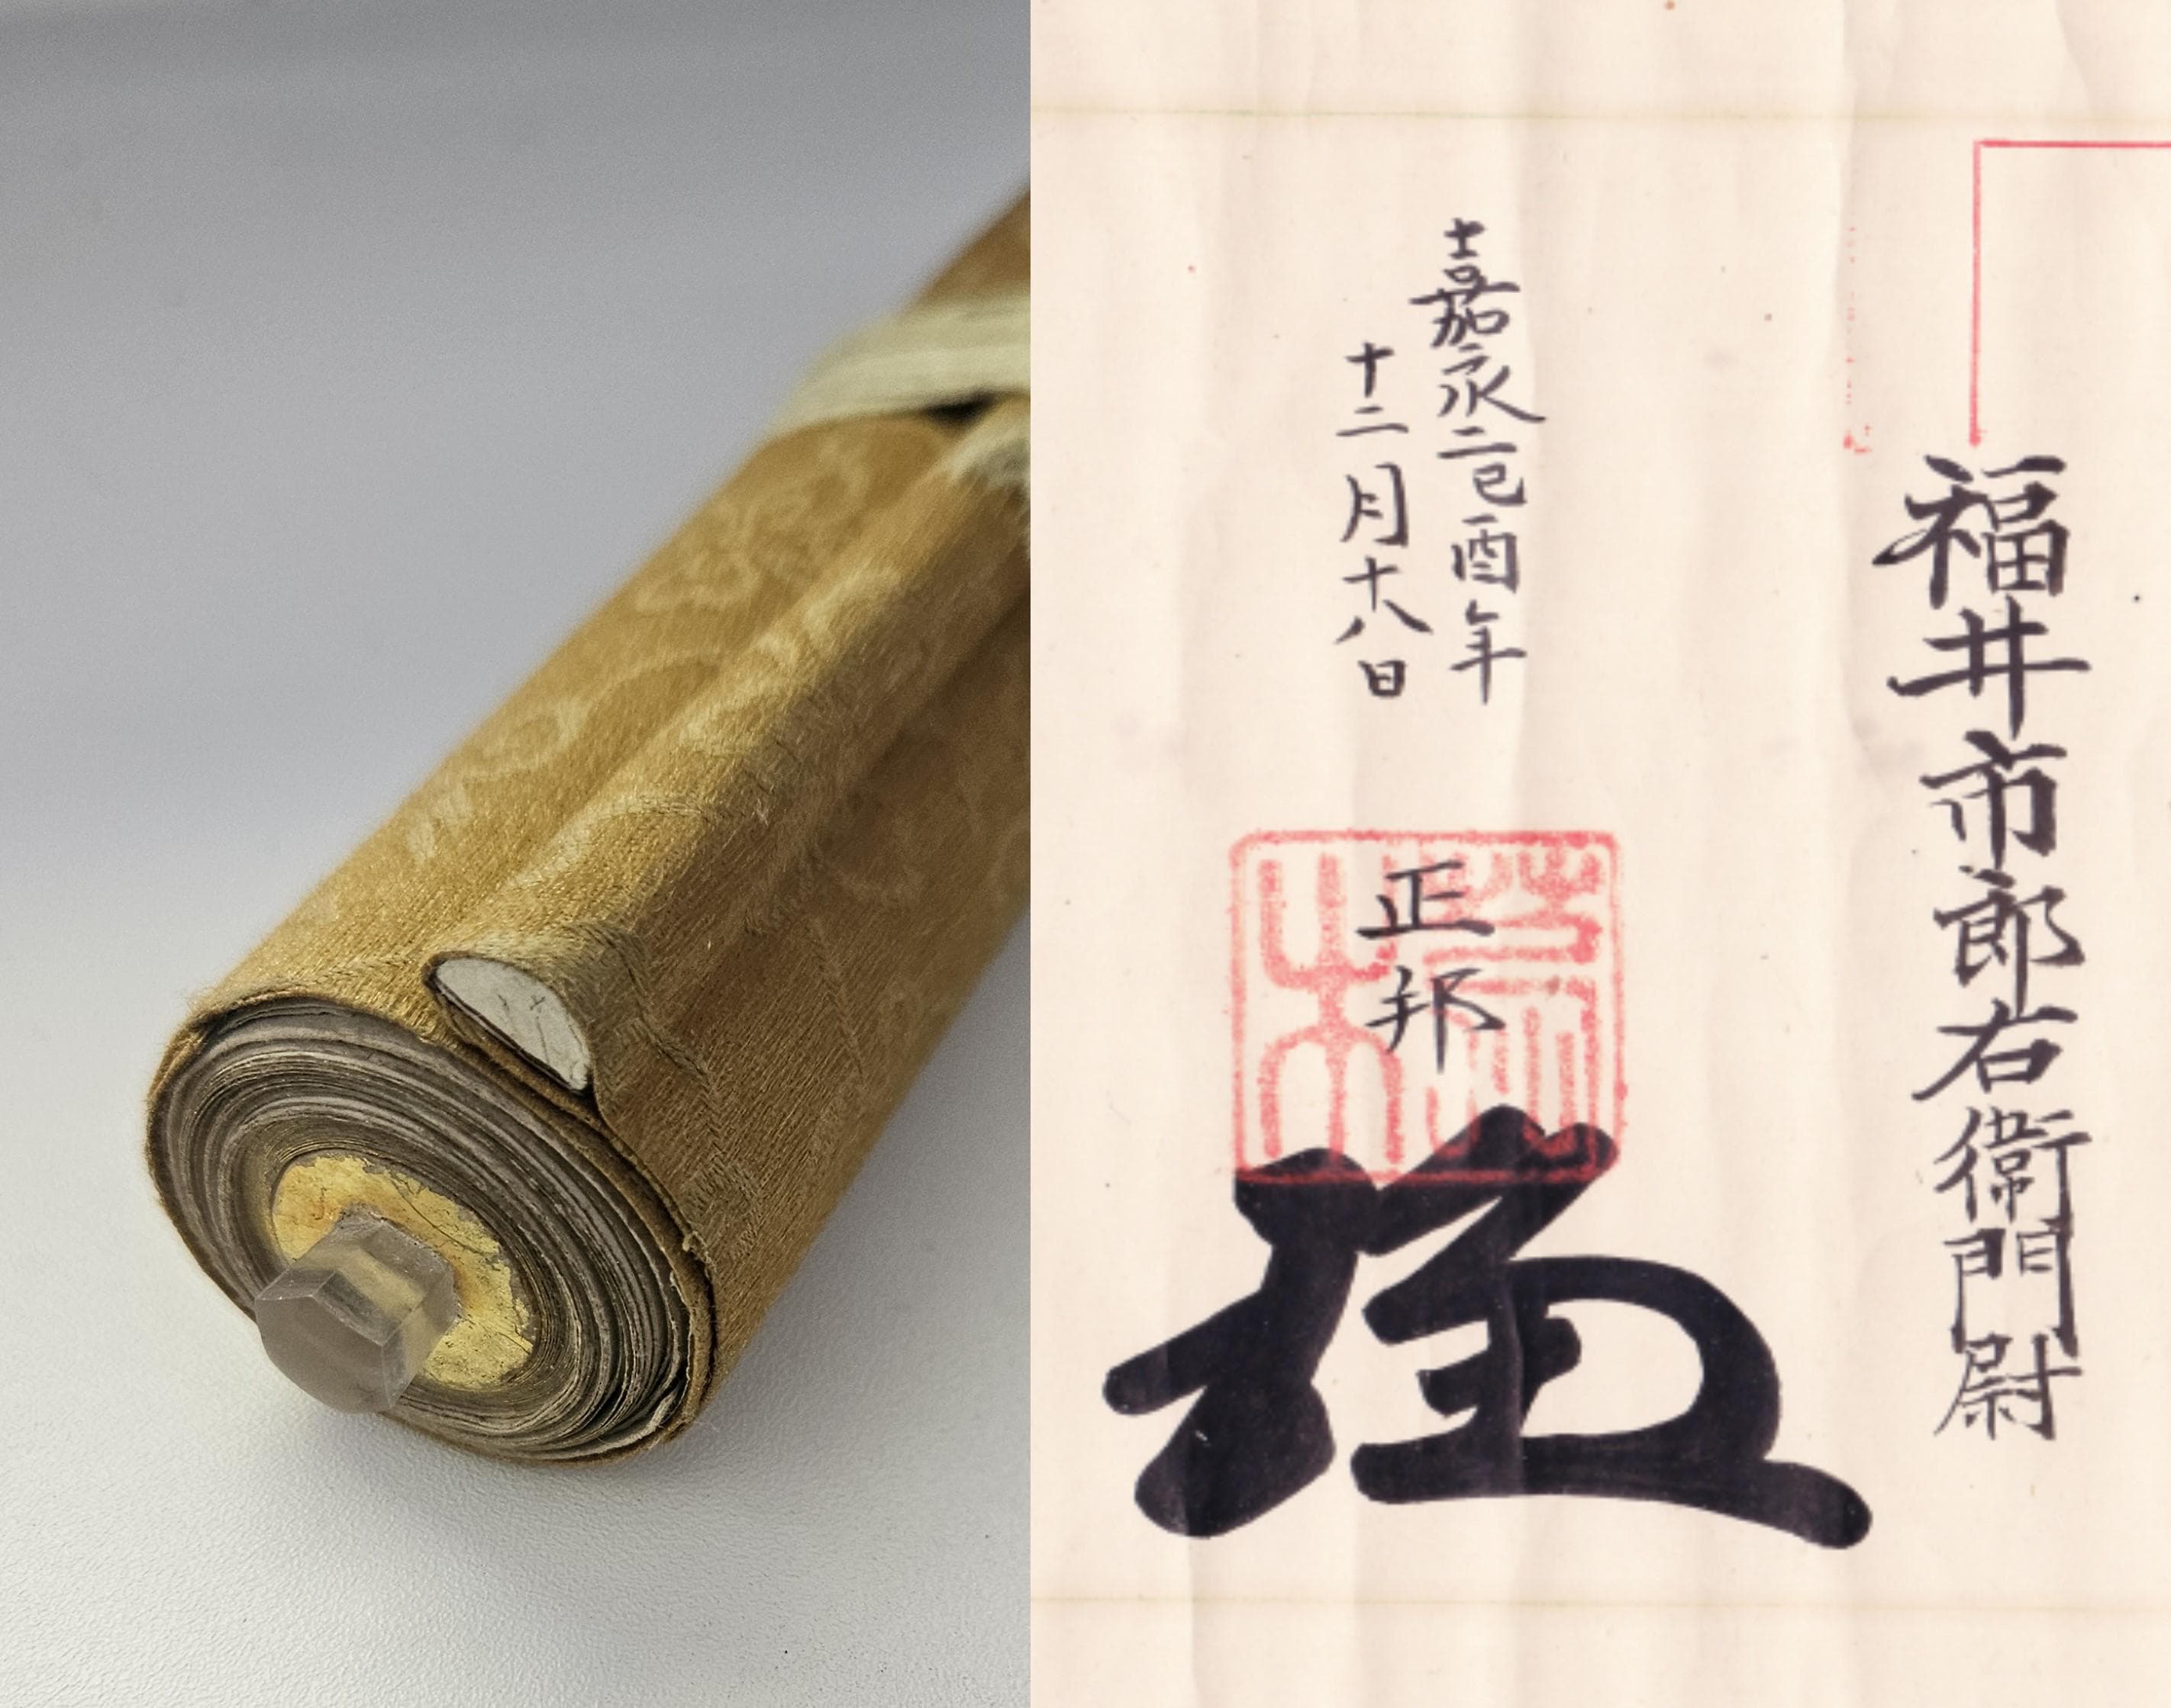 福井市郎右衛門尉
嘉永二己酉年
十二月十八日
正邦